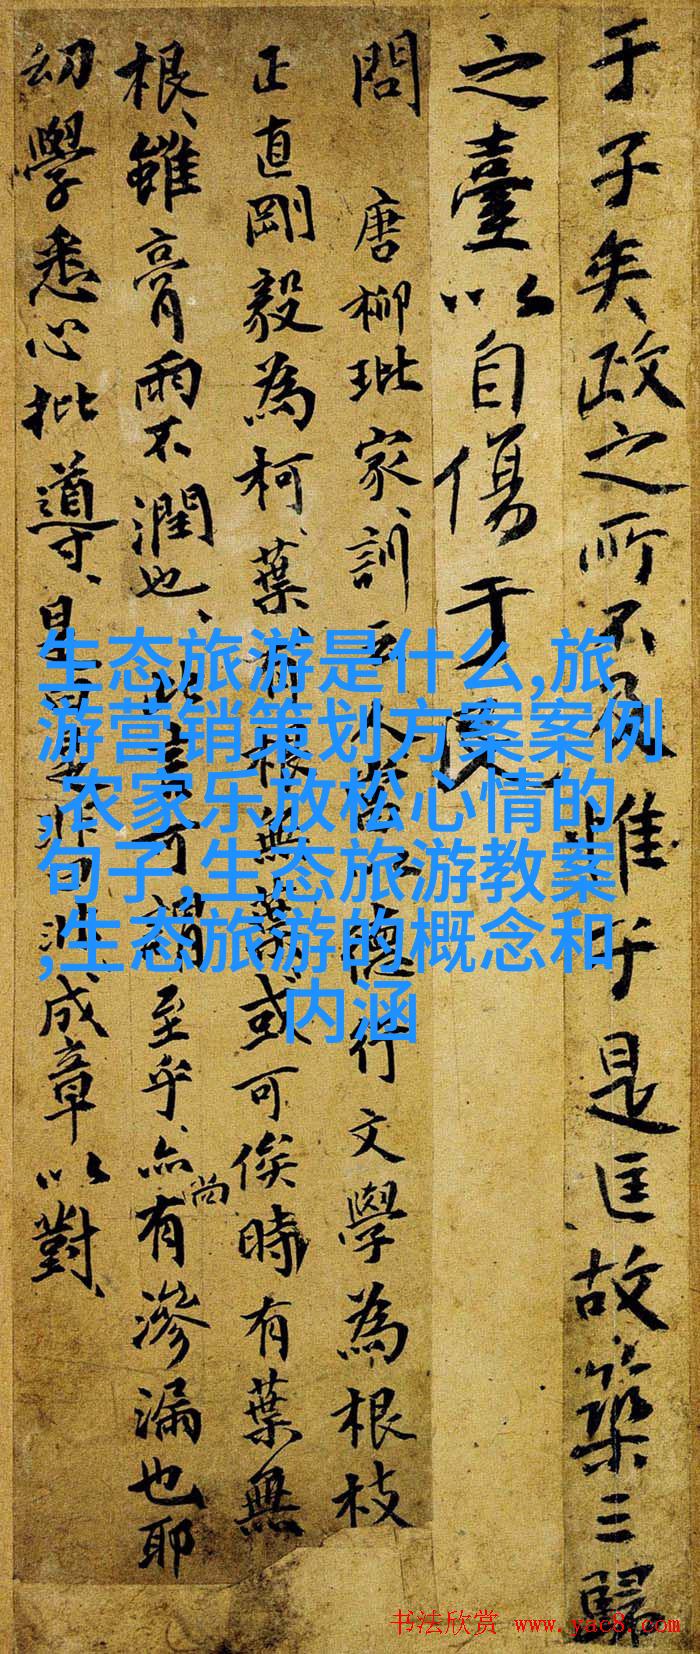 于子矣政之所不及惟于是匡故築三歸
之臺以自傷于民
問 唐柳玭家訓云 德行文學為根枝
正直剛毅為柯葉有根無葉或可俟時有葉無
根雖膏雨不潤也 可謂至乎亦尚有滲漏也耶
幼學悉心批導 是非 成章以對
生态旅游是什么,旅
游营销策划方案案例
,农家乐放松心情的
句子,生态旅游教案
,生态旅游的概念和
内涵
书法欣赏 www.yac8.com